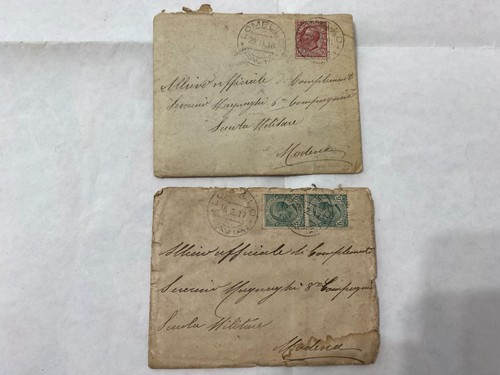 LOMELLO
Allievo ufficiale di Complement
Severino Magnaghi 6ª Compagnia
Scuola Militare
Modena
LOMELLO
Allievo ufficiale di Complement
Severino Magnaghi 8ª Compagnia
Scuola Militare
Modena